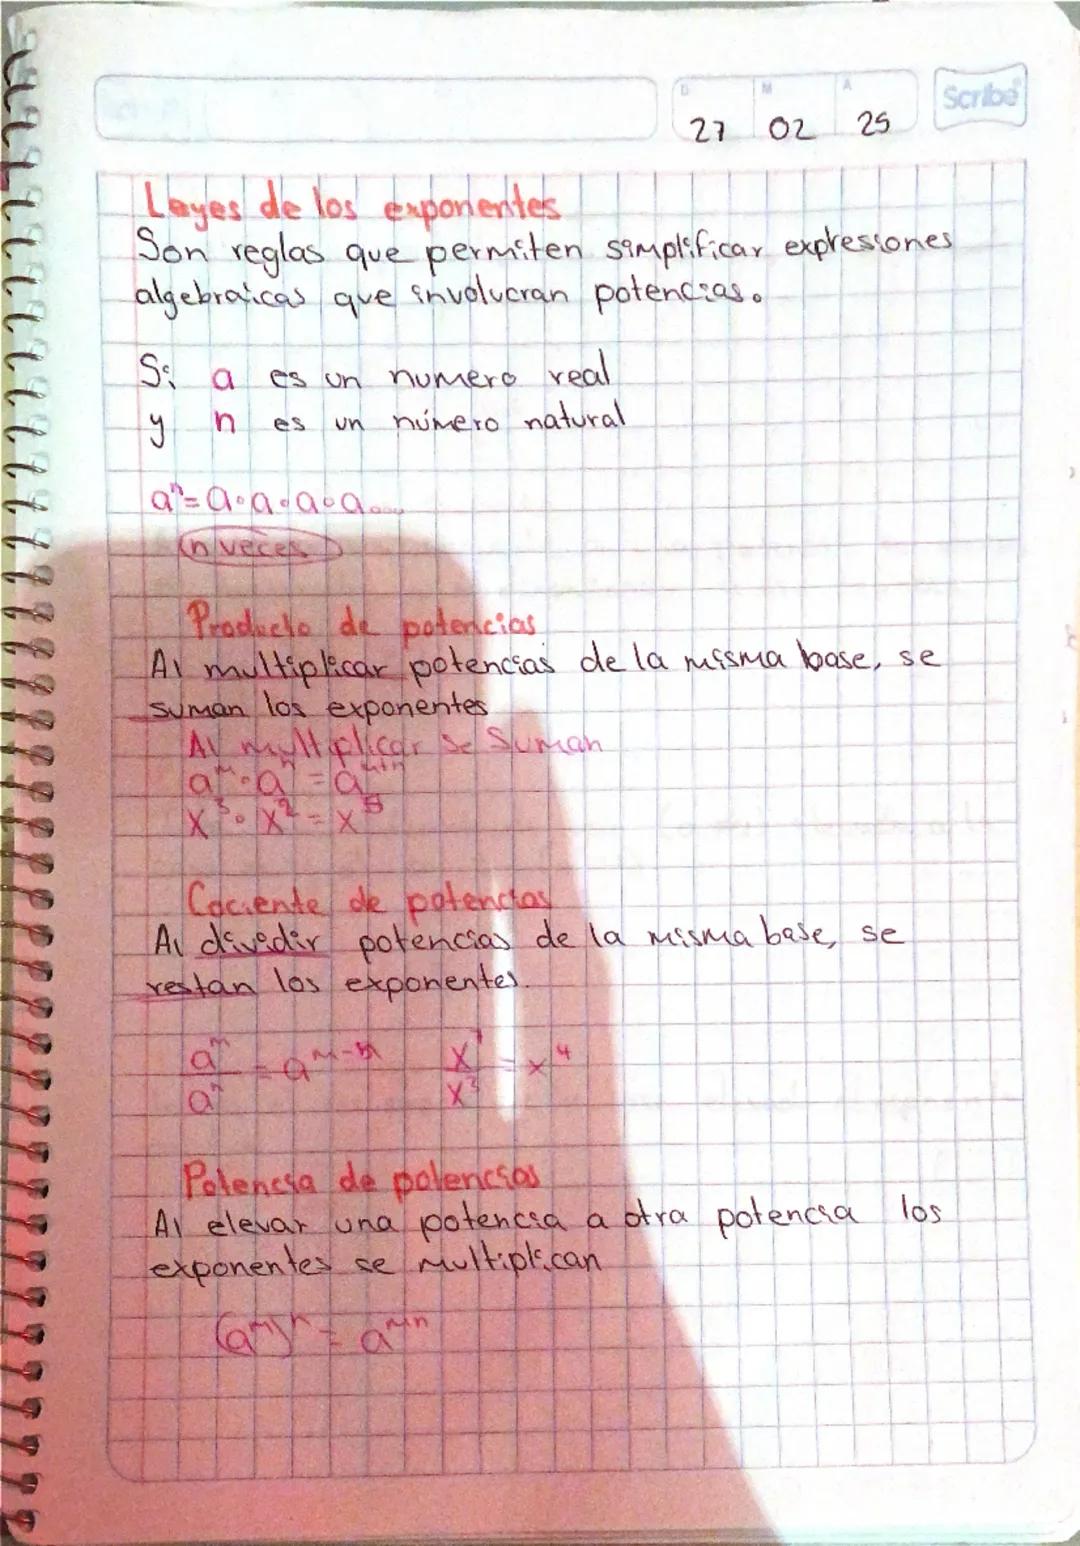 D M A
27 02 25
Scribe
Leyes de los exponentes
Son reglas que permiten simplificar expresiones
algebraicas que involucran potencias.
Si a es un numero real
y n es un número natural
aⁿ=a·a·a·a....
n veces
Producto de potencias
Al multiplicar potencias de la misma base, se
suman los exponentes
Al multiplicar se suman
aᵐ·aⁿ=aᵐ⁺ⁿ
x³·x²=x⁵
Cociente de potencias
Al dividir potencias de la misma base, se
restan los exponentes.
aᵐ/aⁿ = aᵐ⁻ⁿ x⁷/x³ = x⁴
Potencia de potencias
Al elevar una potencia a otra potencia los
exponentes se multiplican
(aᵐ)ⁿ = aᵐⁿ